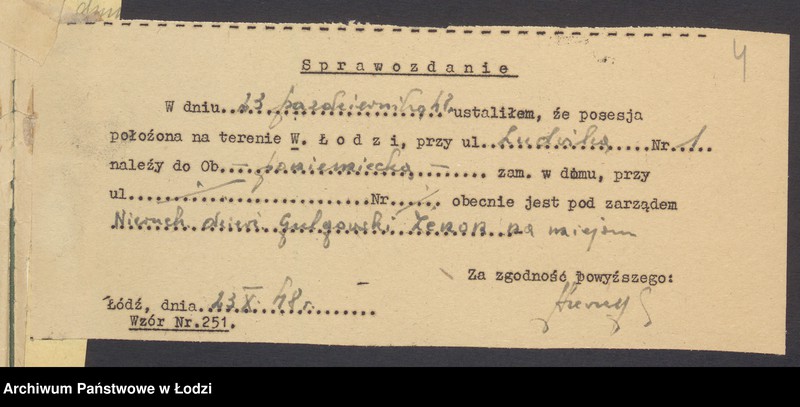 4
Sprawozdanie
W dniu 23 października 48 r. ustaliłem, że posesja
położona na terenie W. Łodzi, przy ul. Ludwika Nr. 1
należy do Ob. – poniemiecka – zam. w domu, przy
ul. Nr. obecnie jest pod zarządem
Nieruch. Zenon na miejscu
Za zgodność powyższego:
Łódź, dnia 23 X. 48 r.
Wzór Nr.251.
Archiwum Państwowe w Łodzi